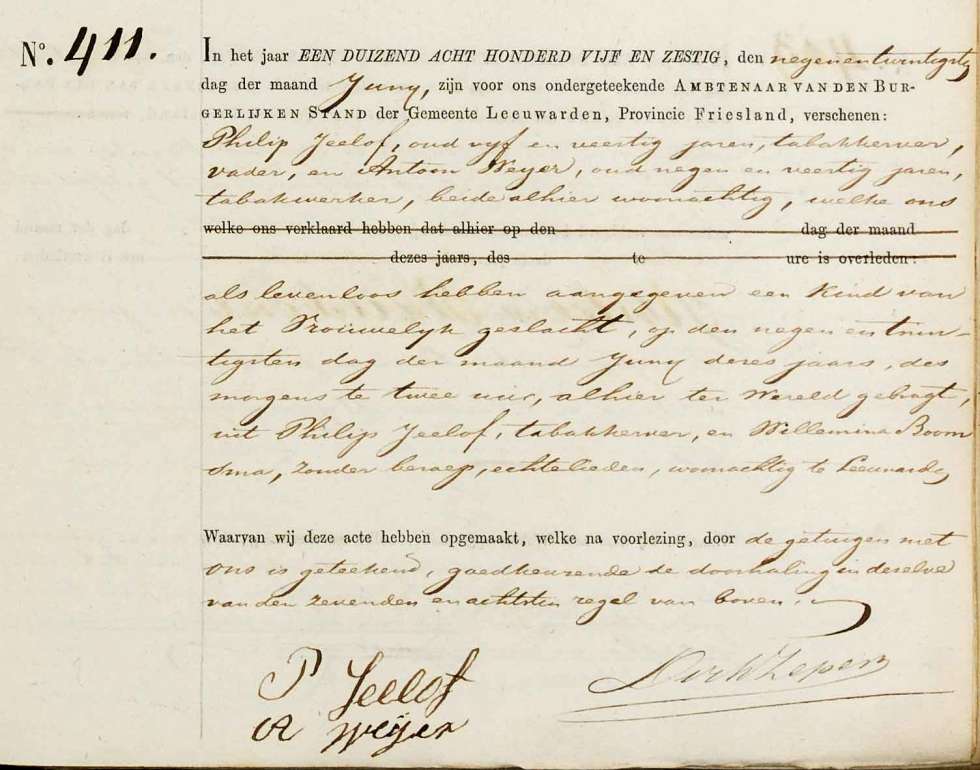 N°. 411.
In het jaar EEN DUIZEND ACHT HONDERD VIJF EN ZESTIG, den negenentwintigste
dag der maand Juny, zijn voor ons ondergeteekende AMBTENAAR VAN DEN BUR-
GERLIJKEN STAND der Gemeente Leeuwarden, Provincie Friesland, verschenen:
Philip Jeelof, oud vyf en veertig jaren, tabakkerver,
vader, en Antoon Weyer, oud negen en veertig jaren,
tabakwerker, beide alhier woonachtig, welke ons
welke ons verklaard hebben dat alhier op den dag der maand
dezes jaars, des te ure is overleden:
als levenloos hebben aangegeven een kind van
het Vrouwelyk geslacht, op den negen en twin-
tigsten dag der maand Juny dezes jaars, des
morgens te twee ure, alhier ter wereld gebragt,
uit Philip Jeelof, tabakkerver, en Willemina Boom
sma, zonder beroep, echtelieden, woonachtig te Leeuwarden
Waarvan wij deze acte hebben opgemaakt, welke na voorlezing, door de getuigen met
ons is geteekend, goedkeurende de doorhaling in dezelve
van den zevenden en achtsten regel van boven.
P Jeelof
A Weijer